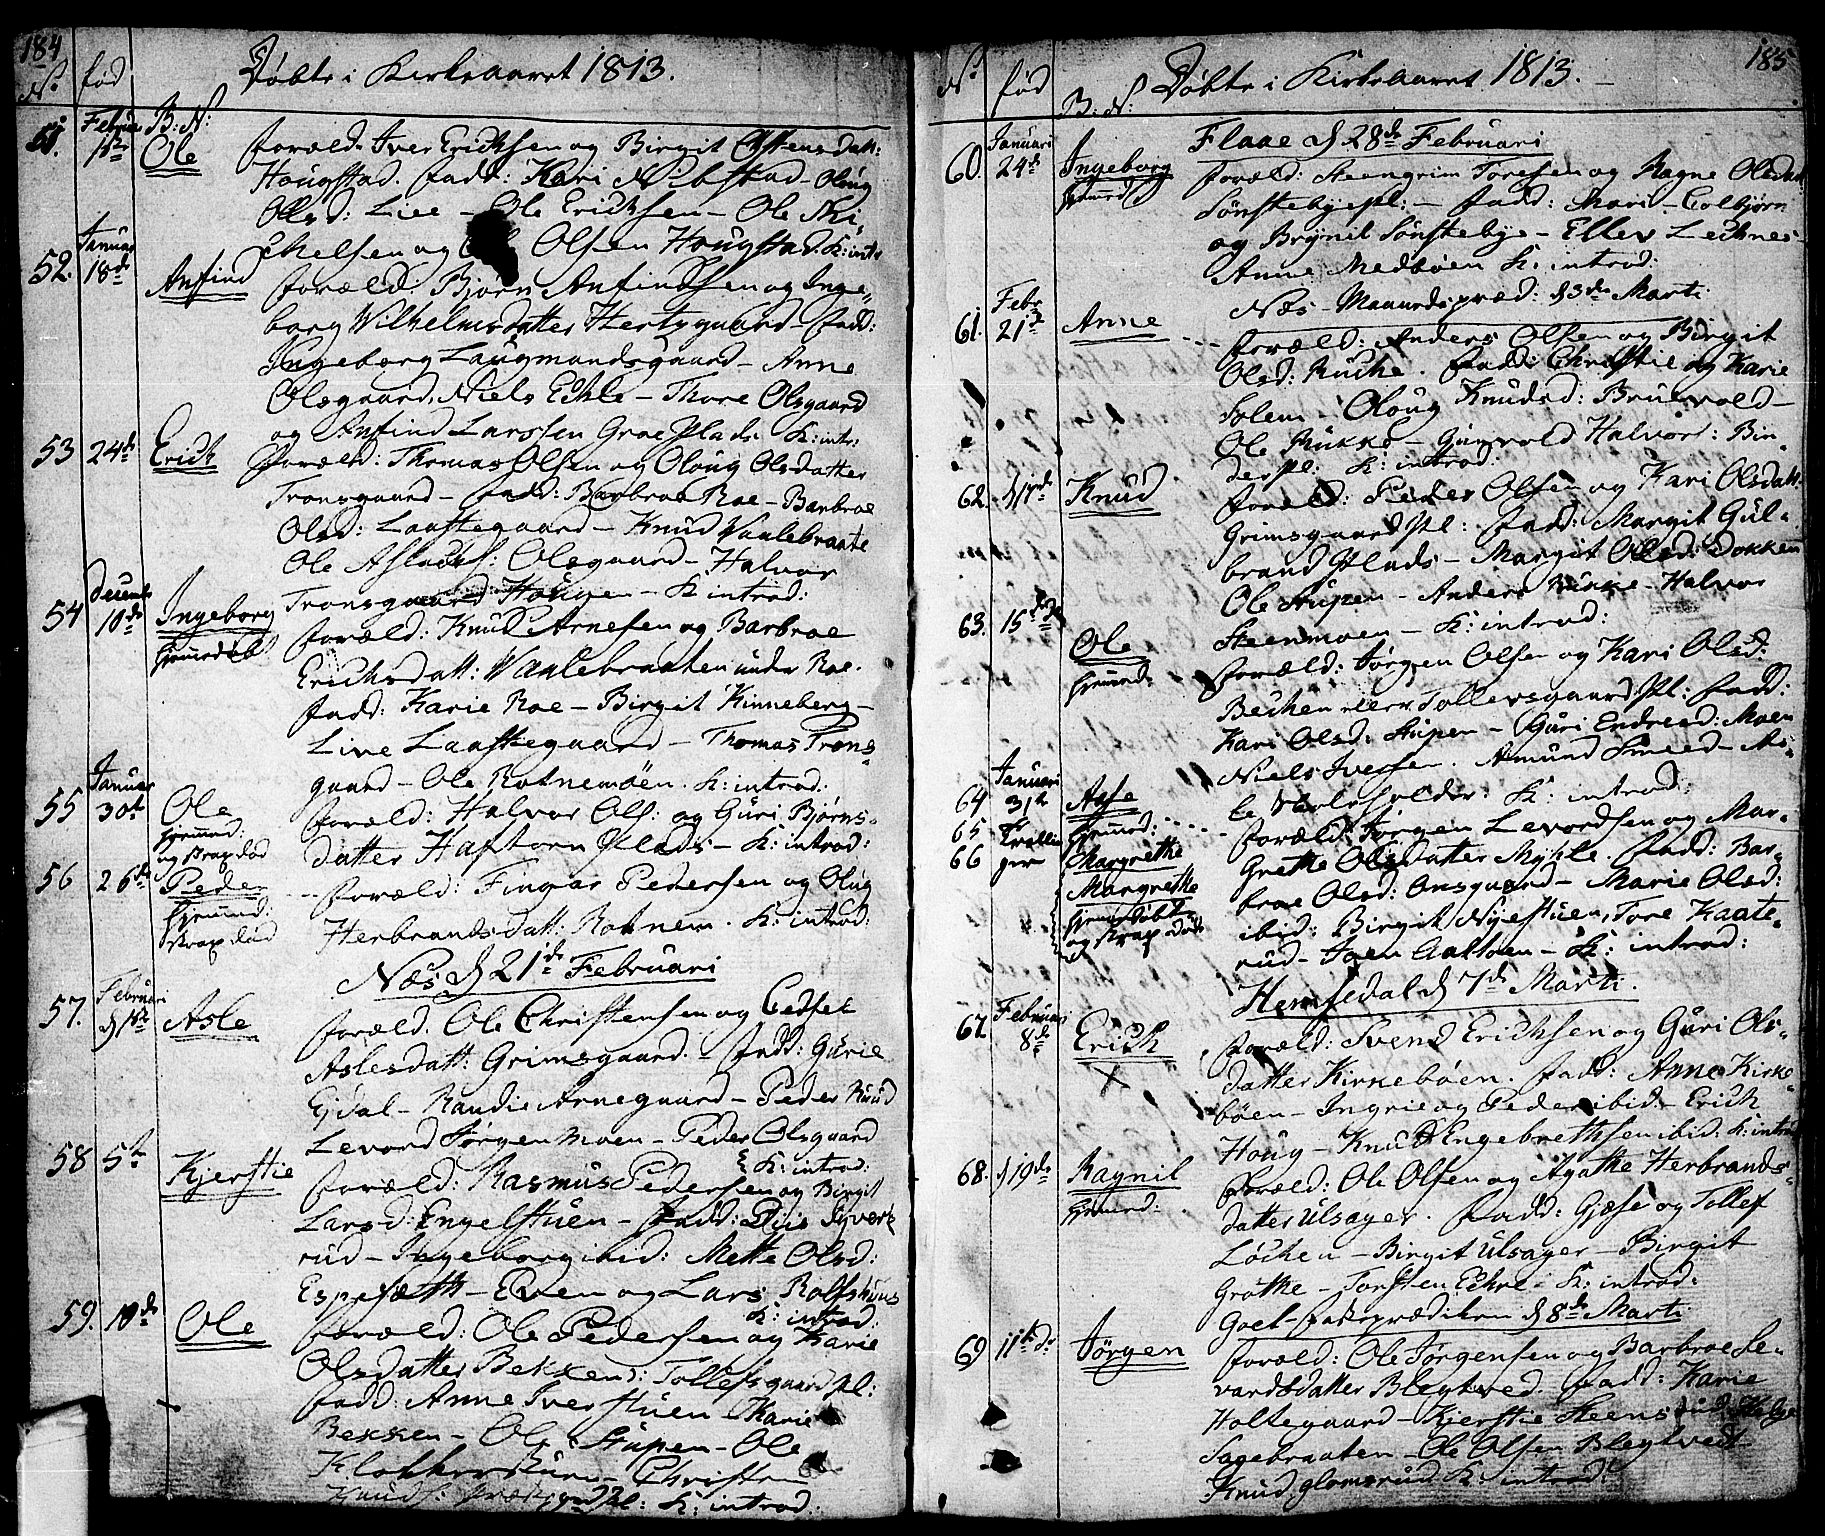 184
N: fød Døbte i Kirkeaaret 1813.
B: N:
51. Februar Ole foræld: Iver Erichsen og Birgit Olstensdatt:
Hougstad. fadd: Kari Nibstad - Oloug
Olsd: Liee - Ole Erichsen - Ole Mi-
chelsen og Ole Olsen Hougstad. K: intr
52. Januar 18de Anfind foræld: Bjørn Anfindsen og Inge-
borg Wilhelmsdatter Hertygaard - fadd:
Ingeborg Laugmandsgaard - Anne
Olsgaard, Niels Echle - Thore Olsgaard
og Anfind Larssen Groe Plads. K: intr:
53 24de Erich foræld: Thomas Olsen og Oloug Olsdatter
Tronsgaard - fadd: Barbroe Roe - Barbroe
Olsd: Laastegaard - Knud Vaalebraate
Ole Aslacks: Olsgaard - Halvor
Tronsgaard Hougen - K: introd:
54 Decemb 10de Ingeborg hjemmedøbt foræld: Knud Arnesen og Barbroe
Erichsdatt: Vaalebraaten under Roe.
fadd: Karie Roe - Birgit Kinneberg -
Live Laastegaard - Thomas Trons-
gaard - Ole Rotnemøen. K: introd:
55 Januar 30te Ole hjemmd: og strax død foræld: Halvor Ols: og Guri Bjørns-
datter Haftorn Plads - K: introd:
56 26de Peder hjemmd: strax død foræld: Fingar Pedersen og Olug
Herbrandsdatt: Rotnem. K: introd:
Næs d 21de Februari
57. Februari Asle foræld. Ole Christensen og Gedsel
Aslesdatt: Grimsgaard. - fadd: Gurie
Ejdal - Randie Arnegaard - Peder Ruud
Levord Jørgen Moen - Peder Olsgaard
K: introd:
58 5te Kjerstie foræld: Rasmus Pedersen og Birgit
Larsd: Engelstuen - fadd: Syverts
rud - Ingeborg ibid: Mette Olsd:
Espeseth - Even og Lars Rolfshuus
K: introd:
59. 10de Ole foræld: Ole Pedersen og Karie
Olsdatter Bekken: Tollefsgaard pl:
fadd: Anne Iverstuen - Karie
Bekken - Ole Stupen - Ole
Klokkerstuen - Christen
Knuds: pl: K: introd:
185
N: fød Døbte i Kirkeaaret 1813. -
B: N:
Flaae d 28de Februari
60. Januari 24de Ingeborg hjemmd foræld: Steengrim Toresen og Ragne Olsdatt
Sønstebye pl: - fadd: Mari - Colbjørn
og Brynil Sønstebye - Ellev Leknes -
Anne Medbøen K: introd:
Næs - Maanedspræd: d 3de Marti
61. Febr 21de Anne foræld: Anders Olsen og Birgit
Olsd: Rucke. fadd: Christie og Karie
Solem - Oloug Knudsd: Bruvold -
Ole Rukke - Gunvold Halvors: Bin-
der pl: K: introd:
62. d 17de Knud foræld: Peder Olsen og Kari Olsdatt
Grimsgaard Pl: fadd: Margit Gul-
brand Plads - Margit Olsd: Dokken
Ole Stupen - Anders Rukke - Halvor
Steenmoen - K: introd:
63. 15de Ole hjemmd: foræld: Jørgen Olsen og Kari Olsd:
Bechen Tollevsgaard Pl: fadd:
Kari Olsd: Stupen - Guri Endresd: Moen
Niels Iversen. Amund Smed - As-
le K: introd:
64 Januari 31te Aase hjemmd: foræld: Jørgen Levordsen og Mar-
65 Trillin Margrethe grethe Olsdatter Myhle. fadd: Bar-
66 ger Margrethe hjemmedøbt og strax døde broe Olsd: Onsgaard - Marie Olsd:
ibid: Birgit Nyestuen, Tore Kaate-
rud - Joen - K: introd:
Hemsedal d 7de Marti.
67. Februar 8de Erich foræld: Svend Erichsen og Guri Ols-
datter Kirkebøen. fadd: Anne Kirke-
bøen - Ingrie og Peder ibid - Erich
Houg - Knud Engebrethsen ibid: K: introd
68. d 19de Ragnil hjemmd: foræld: Ole Olsen og Agathe Herbrands-
datter Ulsager. fadd: Gjøse og Tollef
Løchen - Birgit Ulsager - Birgit
Grøthe - Torsten Echre - K: introd:
Goel - fasteprædiken d 8de Marti
69 11te Jørgen foræld: Ole Jørgensen og Barbroe Le-
vardsdatter Blegtved. fadd: Karie
Holtegaard - Kjerstie Steensrud, Helge
Sagebraaten - Ole Olsen Blegtvedt
Knud Glomsrud K: introd: